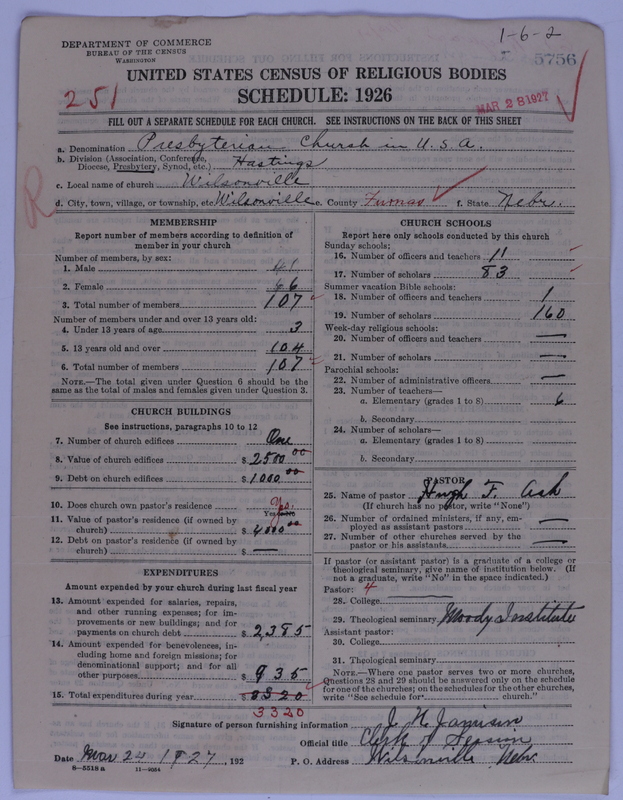 1-6-2
DEPARTMENT OF COMMERCE
BUREAU OF THE CENSUS
WASHINGTON
5756
UNITED STATES CENSUS OF RELIGIOUS BODIES
251
SCHEDULE: 1926
MAR 28 1927
FILL OUT A SEPARATE SCHEDULE FOR EACH CHURCH. SEE INSTRUCTIONS ON THE BACK OF THIS SHEET
a. Denomination Presbyterian Church in U. S. A.
b. Division (Association, Conference, Diocese, Presbytery, Synod, etc.) Hastings
c. Local name of church Wilsonville
R
d. City, town, village, or township, etc. Wilsonville e. County Furnas f. State Nebr.
MEMBERSHIP
Report number of members according to definition of
member in your church
Number of members, by sex:
1. Male 41
2. Female 66
3. Total number of members 107
Number of members under and over 13 years old:
4. Under 13 years of age 3
5. 13 years old and over 104
6. Total number of members 107
NOTE.—The total given under Question 6 should be the
same as the total of males and females given under Question 3.
CHURCH BUILDINGS
See instructions, paragraphs 10 to 12
7. Number of church edifices One
8. Value of church edifices $ 2500 00
9. Debt on church edifices $ 1000 00
10. Does church own pastor's residence Yes.
Yes or No
11. Value of pastor's residence (if owned by
church) $ 4000 00
12. Debt on pastor's residence (if owned by
church) $ —
EXPENDITURES
Amount expended by your church during last fiscal year
13. Amount expended for salaries, repairs,
and other running expenses; for im-
provements or new buildings; and for
payments on church debt $ 2,385
14. Amount expended for benevolences, in-
cluding home and foreign missions; for
denominational support; and for all
other purposes $ 935
15. Total expenditures during year $ 3320
3320
CHURCH SCHOOLS
Report here only schools conducted by this church
Sunday schools:
16. Number of officers and teachers 11
17. Number of scholars 83
Summer vacation Bible schools:
18. Number of officers and teachers 1
19. Number of scholars 160
Week-day religious schools:
20. Number of officers and teachers —
21. Number of scholars —
Parochial schools:
22. Number of administrative officers —
23. Number of teachers—
a. Elementary (grades 1 to 8) 6
b. Secondary
24. Number of scholars—
a. Elementary (grades 1 to 8)
b. Secondary
PASTOR
25. Name of pastor Hugh F. Ash
(If church has no pastor, write "None")
26. Number of ordained ministers, if any, em-
ployed as assistant pastors —
27. Number of other churches served by the
pastor or his assistants —
If pastor (or assistant pastor) is a graduate of a college or
theological seminary, give name of institution below. (If
not a graduate, write "No" in the space indicated.)
Pastor: 4
28. College —
29. Theological seminary Moody Institute
Assistant pastor:
30. College
31. Theological seminary
NOTE.—Where one pastor serves two or more churches,
Questions 28 and 29 should be answered only on the schedule
for one of the churches; on the schedules for the other churches,
write "See schedule for church."
Signature of person furnishing information J. H. Jamison
Official title Clerk of Session
Date Mar 24 1927, 192 P. O. Address Wilsonville Nebr.
8—5518 a 11—9054